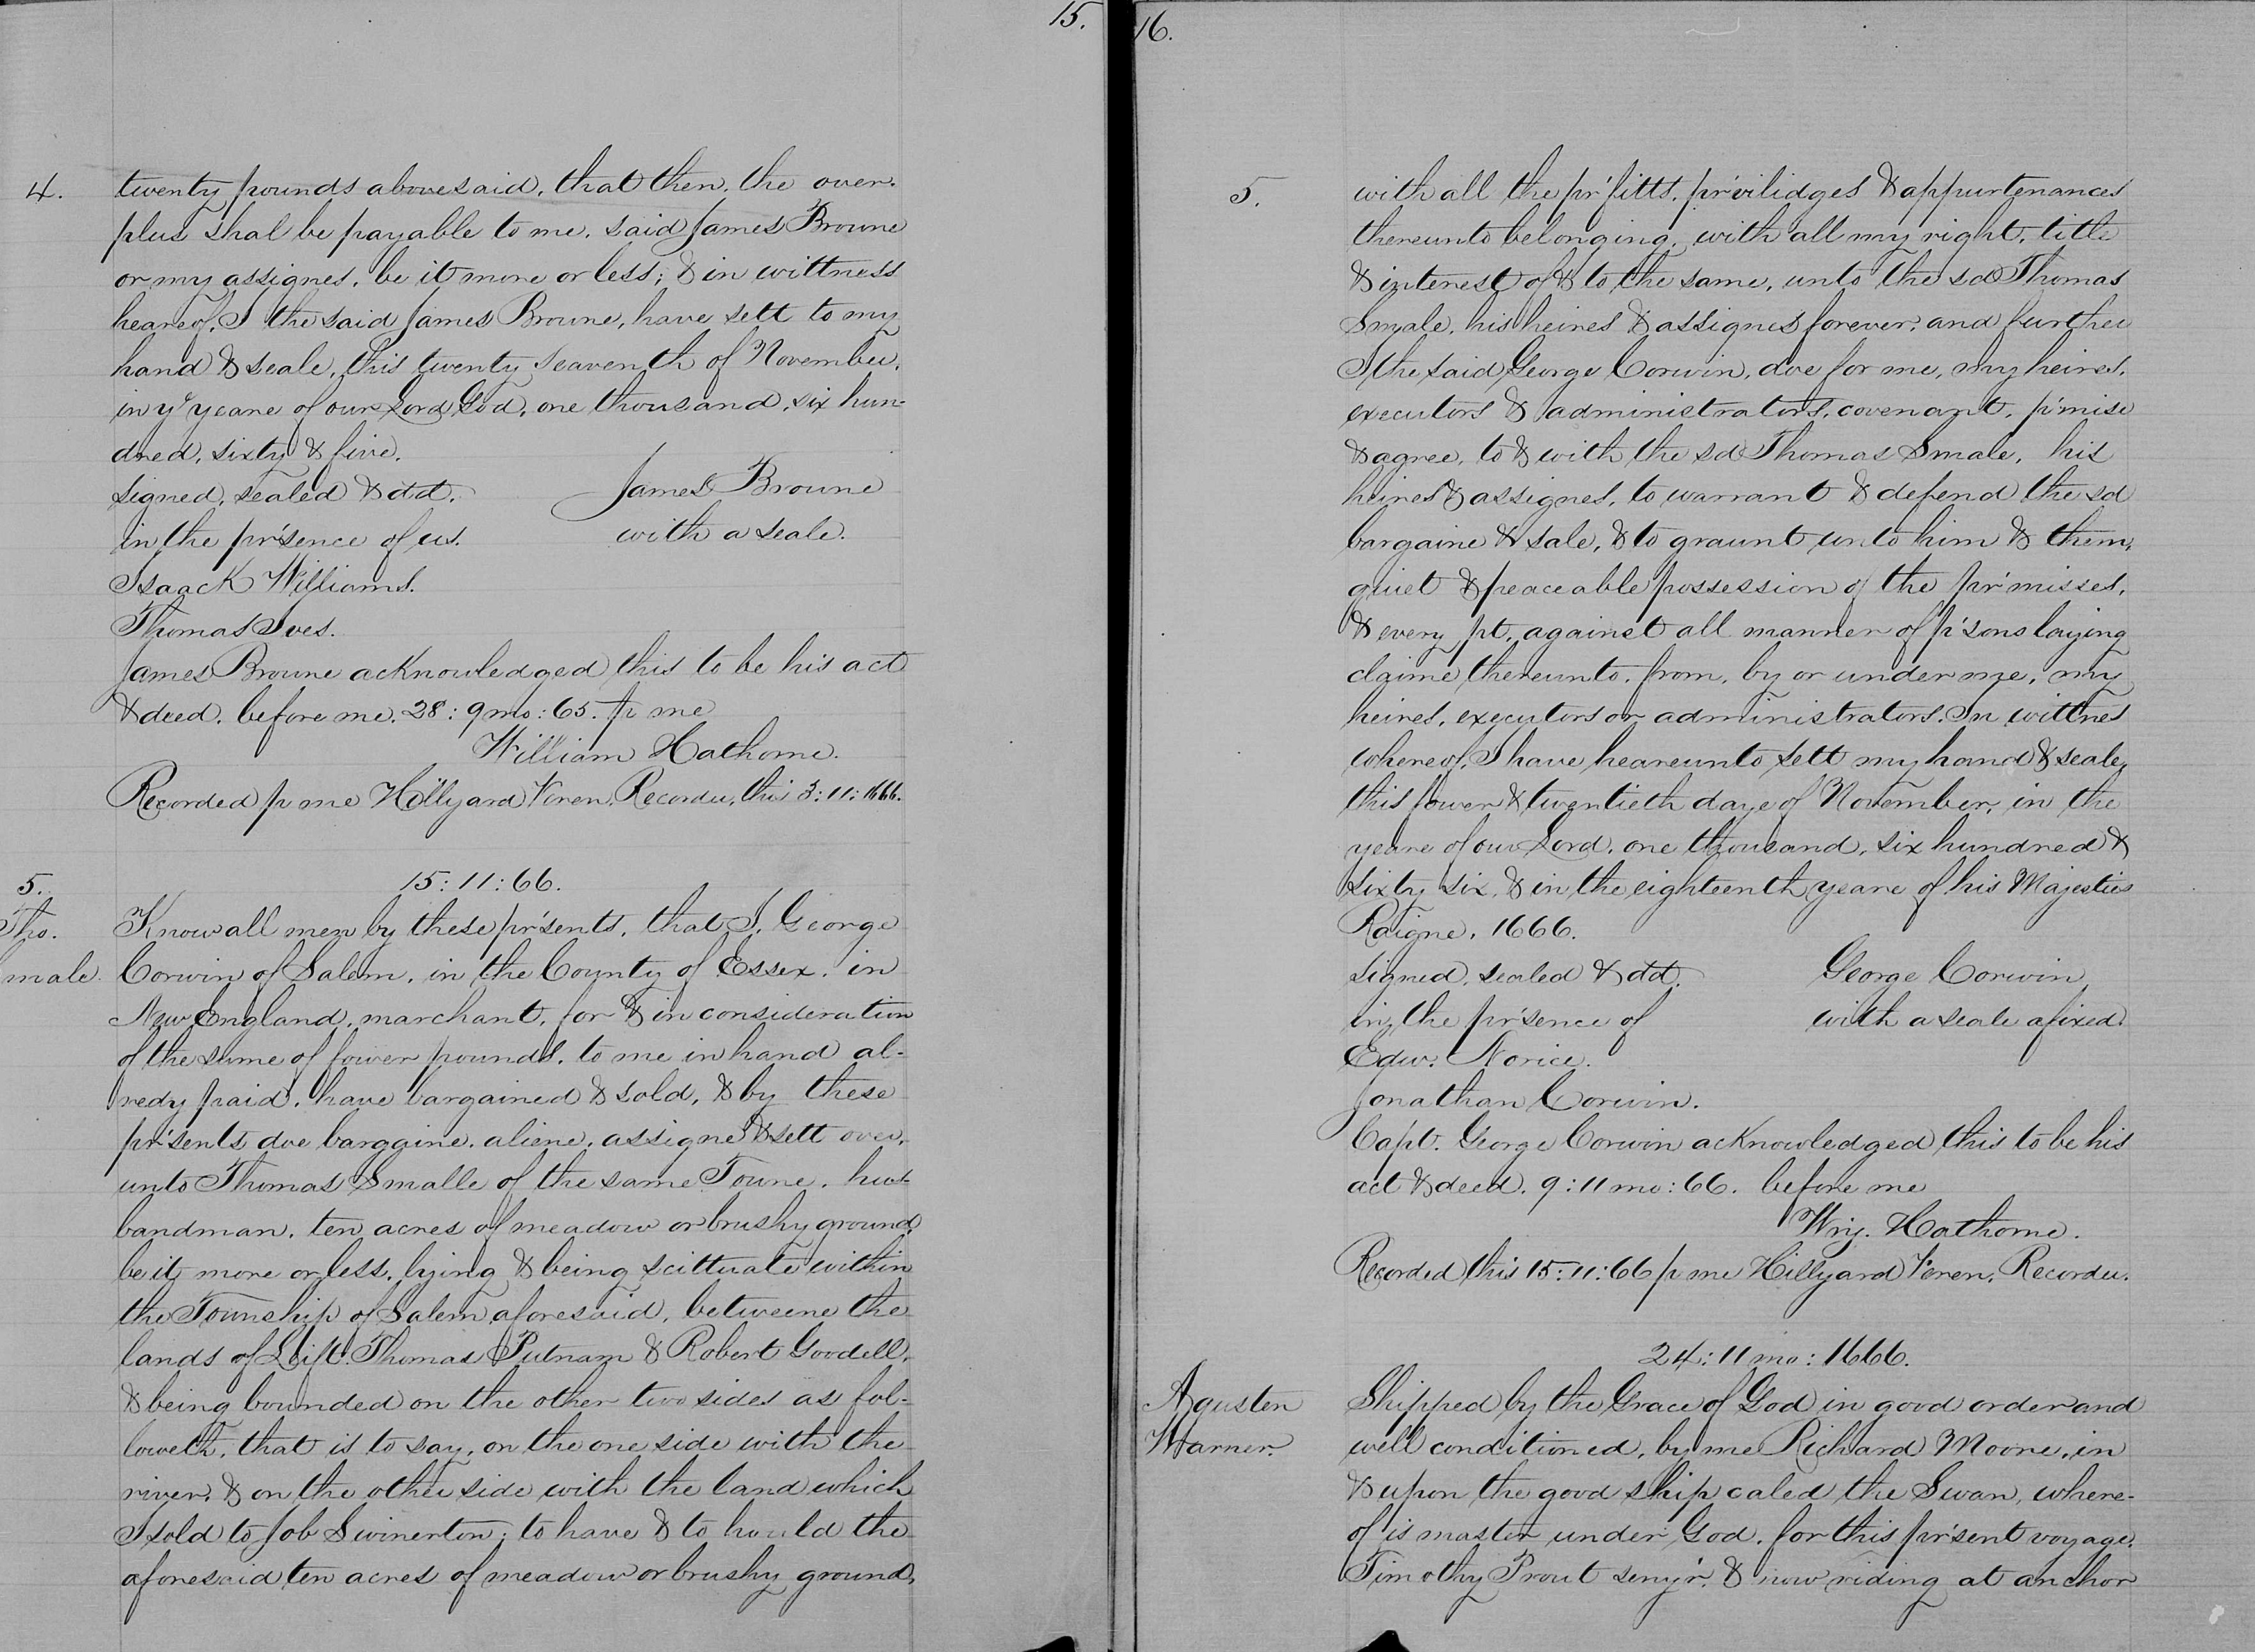 15.
4.
twenty pounds abovesaid, that then, the over-
plus shal be payable to me, said James Browne
or my assignes, be it more or less; & in wittness
heareof, I the said James Browne, have sett to my
hand & seale, this twenty seaventh of November,
in yᵉ yeare of our Lord God, one thousand, six hun-
dred, sixty & five.
signed, sealed & dd. James Browne
in the pr'sence of us. with a seale.
Isaack Williams.
Thomas Ives.
James Browne acknowledged this to be his act
& deed, before me, 28: 9 mo: 65. p me
William Hathorne.
Recorded p me Hillyard Veren, Recorder, this 3: 11: 1666.
5. 15: 11: 66.
Tho. Know all men by these pr'sents, that I, George
male. Corwin of Salem, in the County of Essex, in
New England, marchant, for & in consideration
of the sume of fower pounds, to me in hand al-
redy paid, have bargained & sold, & by these
pr'sents doe barggine, aliene, assigne & sett over,
unto Thomas Smalle of the same Towne, hus-
bandman, ten acres of meadow or brushy ground
be it more or less, lying & being scittuate within
the Township of Salem aforesaid, betweene the
lands of Leift. Thomas Putnam & Robert Goodell,
& being bounded on the other two sides as fol-
loweth, that is to say, on the one side with the
river, & on the other side with the land which
I sold to Job Swinerton; to have & to hould the
aforesaid ten acres of meadow or brushy ground,
16.
5.
with all the pr'fitts, pr'vilidges & appurtenances
thereunto belonging, with all my right, title
& interest of & to the same, unto the sd Thomas
Smale, his heires & assignes forever; and further
I the said George Corwin, doe for me, my heires,
executors & administrators, covenant, p'mise
& agree, to & with the sd Thomas Smale, his
heires & assignes, to warrant & defend the sd
bargaine & sale, & to graunt unto him & them,
quiet & peaceable possession of the pr'misses,
& every pt, against all manner of p'sons laying
claime thereunto, from, by or under me, my
heires, executors or administrators. In wittnes
whereof, I have heareunto sett my hand & seale,
this fower & twentieth daye of November, in the
yeare of our Lord, one thousand, six hundred &
sixty six, & in the eighteenth yeare of his Majesties
Raigne, 1666.
signed, sealed & dd. George Corwin
in the pr'sence of with a seale afixed.
Edw. Norice.
Jonathan Corwin.
Capt. George Corwin acknowledged this to be his
act & deed, 9: 11 mo: 66. before me
Wm. Hathorne.
Recorded this 15: 11: 66 p me Hillyard Veren, Recorder.
24: 11 mo: 1666.
Agusten Shipped by the Grace of God in good order and
Warner. well conditioned, by me Richard Moore, in
& upon the good ship caled the Swan, where-
of is master under God, for this pr'sent voyage,
Timothy Prout seny'r. & now riding at anchor